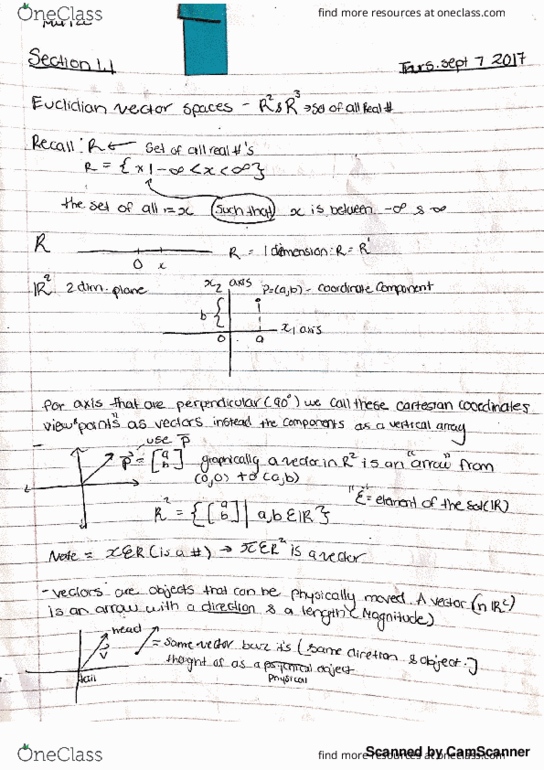 OneClass
find more resources at oneclass.com
Section 1.1
Thurs. sept 7 2017
Euclidian vector spaces - R² & R³ → set of all Real #
Recall: R ← Set of all real #'s
R = {x | -∞ < x < ∞}
the set of all = x such that x is between -∞ & ∞
R
0 x
R = 1 dimension: R = R¹
R² 2 dim. plane
x₂ axis
P=(a,b) - coordinate component
b {
x₁ axis
0 a
for axis that are perpendicular (90°) we call these cartesian coordinates
view "points" as vectors instead the components as a vertical array
use p⃗
p⃗ = [a b] graphically a vector in R² is an "arrow" from
(0,0) to (a,b)
"Ɛ" = element of the set (R)
R² = {[a b] | a,b Ɛ R}
Note = x Ɛ R (is a #) → x⃗ Ɛ R² is a vector
- vectors are objects that can be physically moved. A vector (in R²)
is an arrow with a direction & a length (Magnitude)
head
v⃗
tail
= same vector bcuz it's (same direction & object.)
thought of as a physical object
physical
OneClass
find more resources at oneclass.com
Scanned by CamScanner